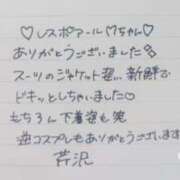 ♡レスポアール♡ちゃん♡
ありがとうございました◇
スーツのジャケット姿...新鮮で
ドキッとしちゃいました♡
もちろん下着姿も笑
逆コスプレもありがとうございます
芹沢